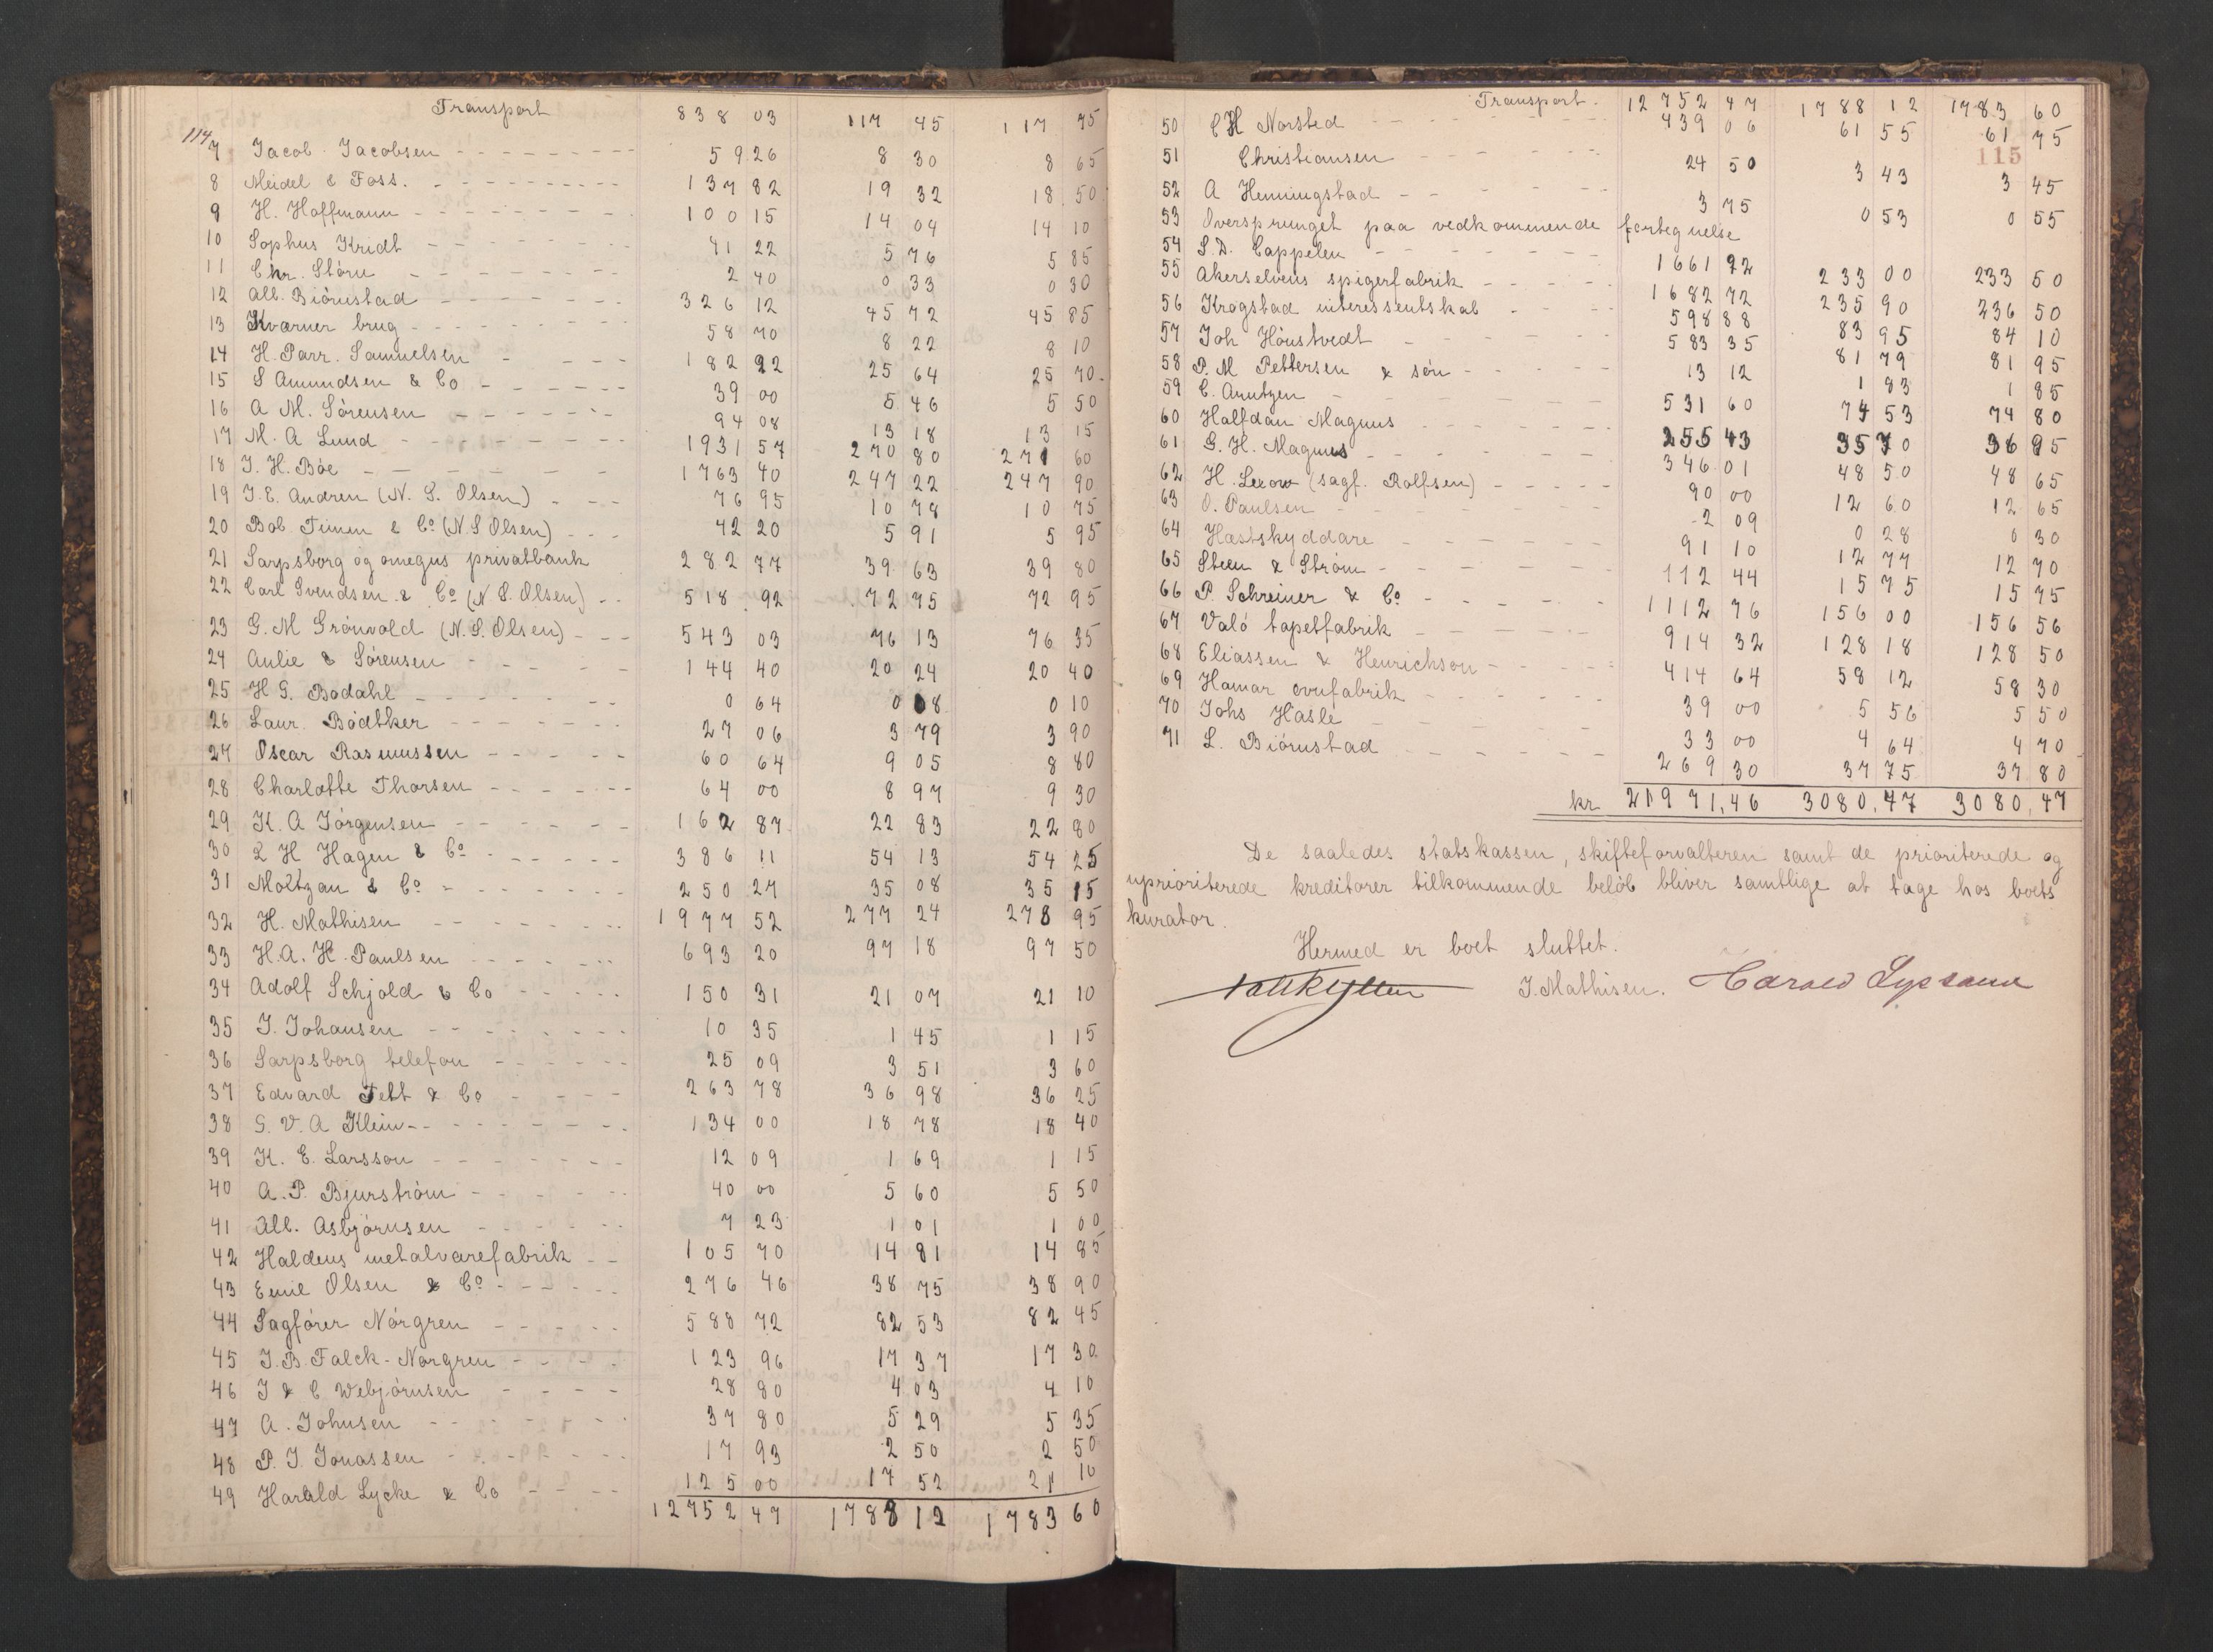 114
Transport 838 03 117 45 117 75
7 Jacob Jacobsen - - - 59 26 8 30 8 65
8 Meidel & Foss. - - - 137 82 19 32 18 50
9 H. Hoffmann - - - 100 15 14 04 14 10
10 Sophus Kridt - - - 41 22 5 76 5 85
11 Chr. Störn - - - 2 40 0 33 0 30
12 Alb. Biörnstad - - - 326 12 45 72 45 85
13 Kværner brug - - - 58 70 8 22 8 10
14 H. Parr. Samuelsen - - - 182 92 25 64 25 70
15 S Amundsen & Co - - - 39 00 5 46 5 50
16 A M. Sörensen - - - 94 08 13 18 13 15
17 M. A Lund - - - 1931 57 270 80 271 60
18 J. H. Böe - - - 1763 40 247 22 247 90
19 J. E. Andren (N. S. Olsen) - - - 76 95 10 78 10 75
20 Bob Timen & Co (N S Olsen) - - - 42 20 5 91 5 95
21 Sarpsborg og omegns privatbank 282 77 39 63 39 80
22 Carl Svendsen & Co (N S. Olsen) - - 518 92 72 75 72 95
23 G. M Grönvold (N. S. Olsen) - - - 543 03 76 13 76 35
24 Aulie & Sörensen - - - 144 40 20 24 20 40
25 H G. Bodahl - - - 0 64 0 08 0 10
26 Laur. Bödtker - - - 27 06 3 79 3 90
27 Oscar Rasmussen - - - 60 64 9 05 8 80
28 Charlotte Thorsen - - - 64 00 8 97 9 30
29 K. A Jörgensen - - - 162 87 22 83 22 80
30 L H Hagen & Co - - - 386 11 54 13 54 25
31 Moltzau & Co - - - 250 27 35 08 35 15
32 H. Mathisen - - - 1977 52 277 24 278 95
33 H. A. H. Paulsen - - - 693 20 97 18 97 50
34 Adolf Schjold & Co - - - 150 31 21 07 21 10
35 J. Johansen - - - 10 35 1 45 1 15
36 Sarpsborg telefon - - - 25 09 3 51 3 60
37 Edvard Tett & Co - - - 263 78 36 98 36 25
38 G. V. A Klein - - - 134 00 18 78 18 40
39 K. E. Larsson - - - 12 09 1 69 1 15
40 A. P. Bjurström - - - 40 00 5 60 5 50
41 Alb. Asbjörnsen - - - 7 23 1 01 1 00
42 Haldens metalvarefabrik - - 105 70 14 81 14 85
43 Emil Olsen & Co - - - 276 46 38 75 38 90
44 Sagförer Nörgren - - - 588 72 82 53 82 45
45 J. B. Falck-Norgren - - - 123 96 17 37 17 30
46 J & C Webjörnsen - - - 28 80 4 03 4 10
47 A. Johnsen - - - 37 80 5 29 5 35
48 P. J. Jonassen - - - 17 93 2 50 2 50
49 Harald Lycke & Co - - - 125 00 17 52 21 10
12752 47 1788 12 1783 60
Transport. 12752 47 1788 12 1783 60
50 C H Norsted - - - 439 06 61 55 61 75
115
51 Christiansen - - - 24 50 3 43 3 45
52 A Henningstad - - - 3 75 0 53 0 55
53 Oversprunget paa vedkommende fortegnelse
54 S. D. Cappelen - - - 1661 92 233 00 233 50
55 Akerselvens spigerfabrik - - - 1682 72 235 90 236 50
56 Krogstad interessentskab - - - 598 88 83 95 84 10
57 Joh Hönstvedt - - - 583 35 81 79 81 95
58 P. M Pettersen & sön - - - 13 12 1 83 1 85
59 C. Arntzen - - - 531 60 74 53 74 80
60 Halfdan Magnus - - - 255 43 35 70 36 95
61 G. H. Magnus - - - 346 01 48 50 48 65
62 H. Leeow (sagf. Rolfsen) - - - 90 00 12 60 12 65
63 O. Paulsen - - - 2 09 0 28 0 30
64 Hæstskyddare - - - 91 10 12 77 12 70
65 Steen & Ström - - - 112 44 15 75 15 75
66 P. Schreiner & Co - - - 1112 76 156 00 156 56
67 Valö tapetfabrik - - - 914 32 128 18 128 50
68 Eliassen & Henrichson - - - 414 64 58 12 58 30
69 Hamar ovnfabrik - - - 39 00 5 56 5 50
70 Johs Hasle - - - 33 00 4 64 4 70
71 L. Biörnstad - - - 269 30 37 75 37 80
kr 21971,46 3080,47 3080,47
De saaledes statskassen, skifteforvalteren samt de prioriterede og
uprioriterede kreditorer tilkommende belöb bliver samtlige at tage hos boets
kurator.
Hermed er boet sluttet.
J. Mathisen. Harald